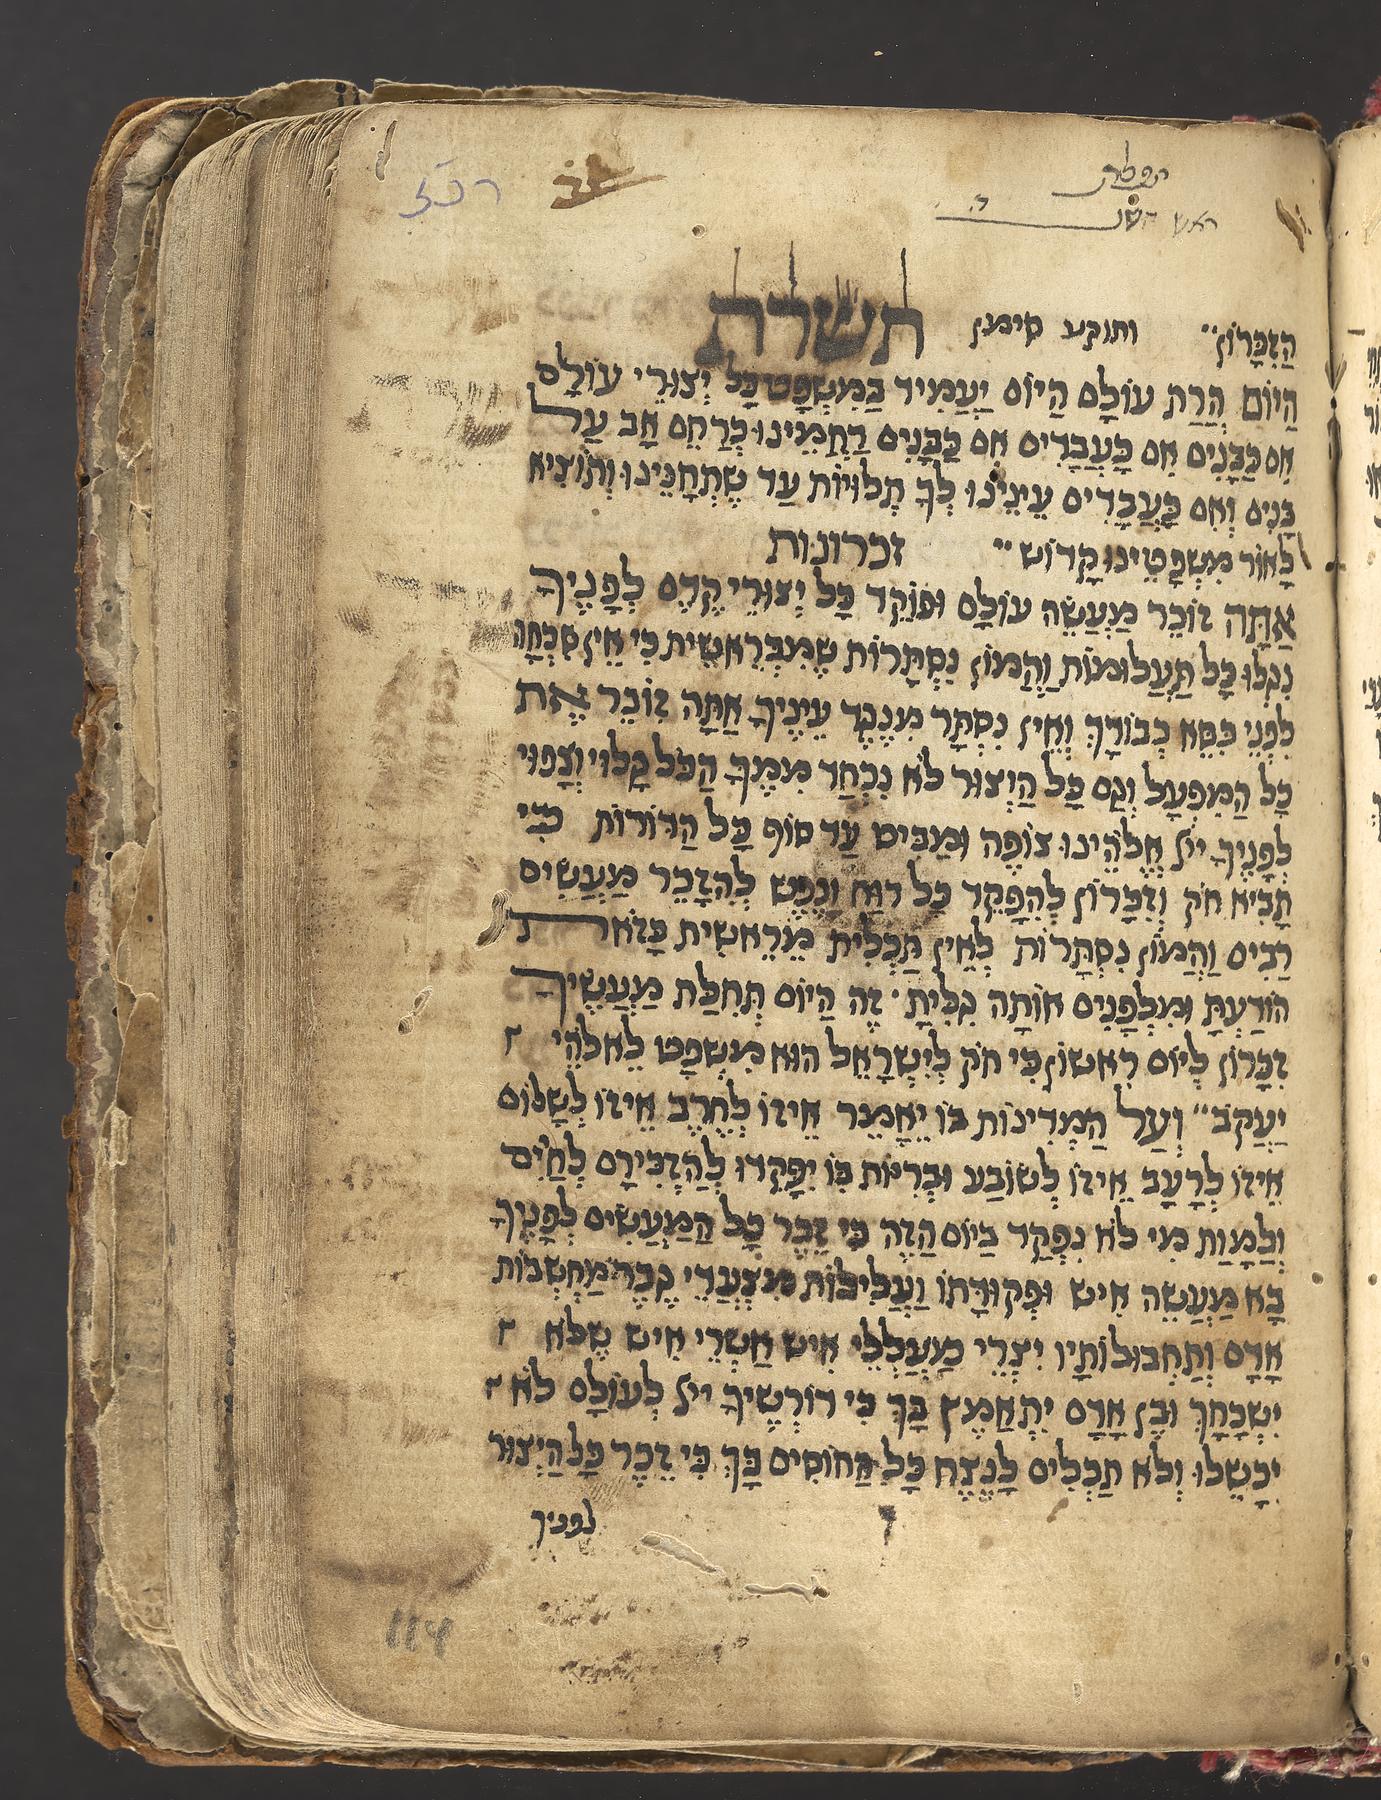 תפלת
ראש השנ ה
הַזִכָּרוֹן" ותוקע סימן תשרת
הַיוֹם הֲרַת עוֹלָם הַיוֹם יַעֲמִיד בַּמִשְׁפָּט כָּל יְצוּרֵי עוֹלָם
אִם כַּבָּנִים אִם כַּעֲבָדִים אִם כַּבָּנִים רַחֲמֵינוּ כְּרַחֵם אָב עַל
בָּנִים וְאִם כַּעֲבָדִים עֵינֵינוּ לְךָ תְלוּיוֹת עַד שֶׁתְּחָנֵּינוּ וְתוֹצִיא
לָאוֹר מִשְׁפָּטֵינוּ קָדוֹשׁ" זכרונות
אַתָּה זוֹכֵר מַעֲשֵׂה עוֹלָם וּפוֹקֵד כָּל יְצוּרֵי קֶדֶם לְפָנֶיךָ
נִגְלוּ כָּל תַּעֲלוּמוֹת וַהֲמוֹן נִסְתָּרוֹת שֶׁמִבְּרֵאשִׁית כִּי אֵין שִׁכְחָה
לִפְנֵי כִסֵּא כְבוֹדָךְ וְאֵין נִסְתָּר מִנֶגֶד עֵינֶיךָ אַתָּה זוֹכֵר אֶת
כָּל הַמִפְעָל וְגַם כָּל הַיְצוּר לֹא נִכְחַד מִמֶךָ הַכֹּל גָלוּי וְצָפוּי
לְפָנֶיךָ ייל אֱלֹהֵינוּ צוֹפֶה וּמַבִּיט עַד סוֹף כָּל הַדוֹרוֹת כִּי
תָבִיא חֹק וְזִכָּרוֹן לְהִפָּקֵד כָּל רוּחַ וָנֶפֶשׁ לְהִזָּכֵר מַעֲשִׂים
רַבִּים וַהֲמוֹן נִסְתָּרוֹת לְאֵין תַּכְלִית מֵרֵאשִׁית כָּזֹאת
הוֹדַעְתָּ וּמִלְּפָנִים אוֹתָהּ גִלִּיתָ זֶה הַיוֹם תְּחִלַּת מַעֲשֶׂיךָ
זִכָּרוֹן לְיוֹם רִאשׁוֹן כִּי חֹק לְיִשְׂרָאֵל הוּא מִשְׁפָּט לֵאלֹהֵי
יַעֲקֹב" וְעַל הַמְדִינוֹת בּוֹ יֵאָמֵר אֵיזוֹ לְחֶרֶב אֵיזוֹ לְשָׁלוֹם
אֵיזוֹ לְרָעָב אֵיזוֹ לְשׂוֹבַע וּבְרִיּוֹת בּוֹ יִפָּקֵדוּ לְהַזְכִּירָם לְחַיִּים
וְלַמָּוֶת מִי לֹא נִפְקַד בַּיוֹם הַזֶה כִּי זֵכֶר כָּל הַמַעֲשִׂים לְפָנֶיךָ
בָּא מַעֲשֵׂה אִישׁ וּפְקוּדָתוֹ וַעֲלִילוֹת מִצְעֲדֵי גֶבֶר מַחְשְׁבוֹת
אָדָם וְתַחְבּוּלוֹתָיו יִצְרֵי מַעַלְלֵי אִישׁ אַשְׁרֵי אִישׁ שֶׁלֹא
יִשְׁכָּחֶךָ וּבֶן אָדָם יִתְאַמֵץ בָּךְ כִּי דוֹרְשֶׁיךָ ייל לְעוֹלָם לֹא
יִכָּשֵׁלוּ וְלֹא תַכְלִים לָנֶצַח כָּל הַחוֹסִים בָּךְ כִּי זֵכֶר כָּל הַיְצוּר
לפניך
114